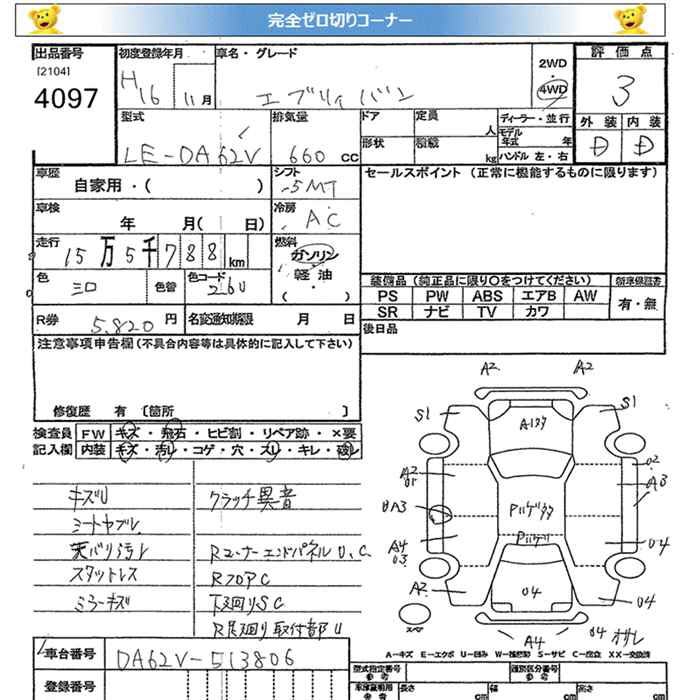 完全ゼロ切りコーナー
出品番号 初度登録年月 車名・グレード 2WD ・ 4WD 評価点
[2104]
4097
H16 11月 エブリィバン 3
型式 排気量 ドア 定員 人 ディーラー・並行 外装 内装
形状 積載 kg モデル年式 年 ハンドル 左・右
LE-DA62V 660 cc D D
車歴 自家用・( ) シフト -5MT セールスポイント (正常に機能するものに限ります)
車検 年 月( 日) 冷房 AC
走行 15万5千788km 燃料 ガソリン・軽油・( )
色 シロ 色替 色コード 26U
装備品 (純正品に限り○をつけてください) 新車保証書
PS PW ABS エアB AW 有・無
SR ナビ TV カワ
R券 5,820円 名変通知期限 月 日 後日品
注意事項申告欄 (不具合内容等は具体的に記入して下さい)
修復歴 有 [箇所 ]
検査員 FW キズ・飛石・ヒビ割・リペア跡・×要
記入欄 内装 キズ・汚レ・コゲ・穴・スレ・キレ・破レ
キズU クラッチ異音
シートヤブレ
天バリ汚レ RコーナーエンドパネルU、C
スタットレス RフロアC
ミラーキズ 下廻りSC
R足廻り取付部U
A2 A2
S1 S1
A1
A2 U1 U2 A3
UA3
A4 U3 U4
A2 U4 U4
A4 U4
A-キズ E-エクボ U-凹み W-補修跡 S-サビ C-腐食 XX-交換済
車台番号 DA62V-513806
登録番号
型式指定番号 類別区分番号
長さ cm 幅 cm 高さ cm